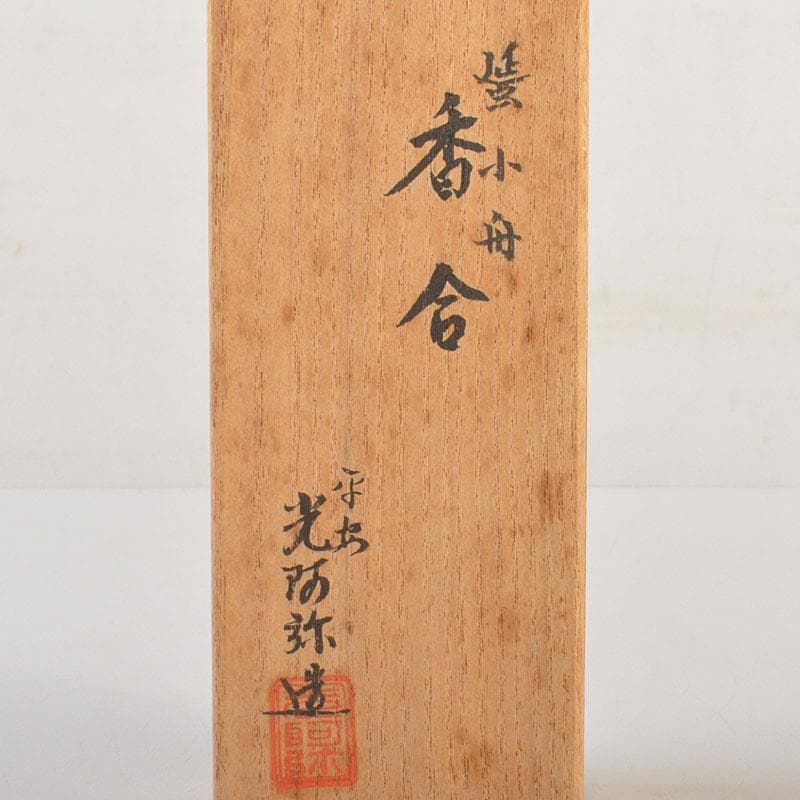 蜑小舟
香合
平安
光阿弥造